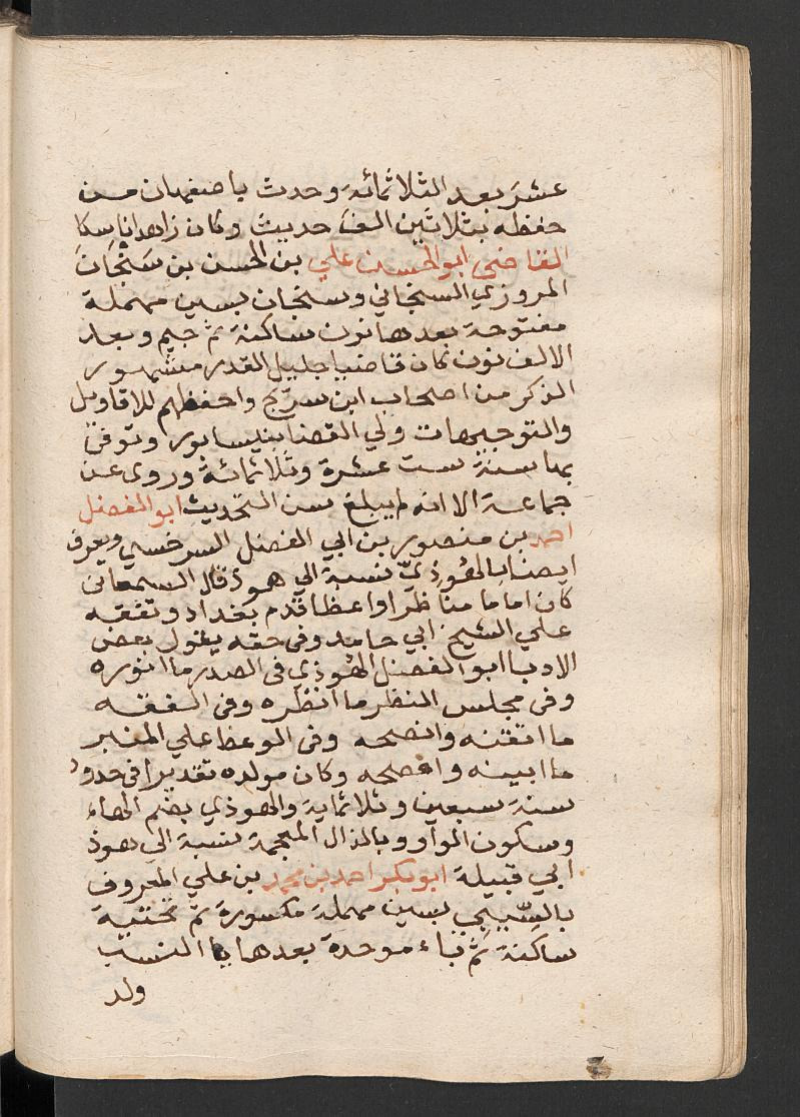 عشر بعد الثلاثمائة وحدث باصفهان من
حفظه بثلاثين الف حديث وكان زاهدا ناسكا
القاضى ابو الحسين علي بن الحسن بن سنجان
المروزي السنجاني وسنجان بسين مهملة
مفتوحة بعدها نون ساكنة ثم جيم وبعد
الالف نون كان قاضيا جليل القدر مشهور
الذكر من اصحاب ابن سريج واحفظهم للاقاويل
والتوجيهات ولي القضا بنيسابور وتوفى
بها سنة ست عشرة وثلاثمائة وروى عن
جماعة الا انه لم يبلغ سن التحديث ابو الفضل
احمد بن منصور بن ابي الفضل السرخسي ويعرف
ايضا بالهوذيّ نسبة الي هوذ قال السمعانى
كان اماما مناظرا واعظا قدم بغداد وتفقه
علي الشيخ ابي حامد وفى حقه يقول بعض
الادبا ابو الفضل الهوذي فى الصدر ما انوره
وفى مجلس النظر ما انظره وفى الفقه
ما اتقنه وانصحه وفى الوعظ علي المنبر
ما ابينه وافصحه وكان مولده تقديرا فى حدود
سنة سبعين وثلاثماية والهوذي بضم الهاء
وسكون الواو وبالذال المعجمة نسبة الى هوذ
ابي قبيلة ابو بكر احمد بن محمد بن علي المعروف
بالسّيبي بسين مهملة مكسورة ثم تحتية
ساكنة ثم باء موحدة بعدها يا النسب
ولد